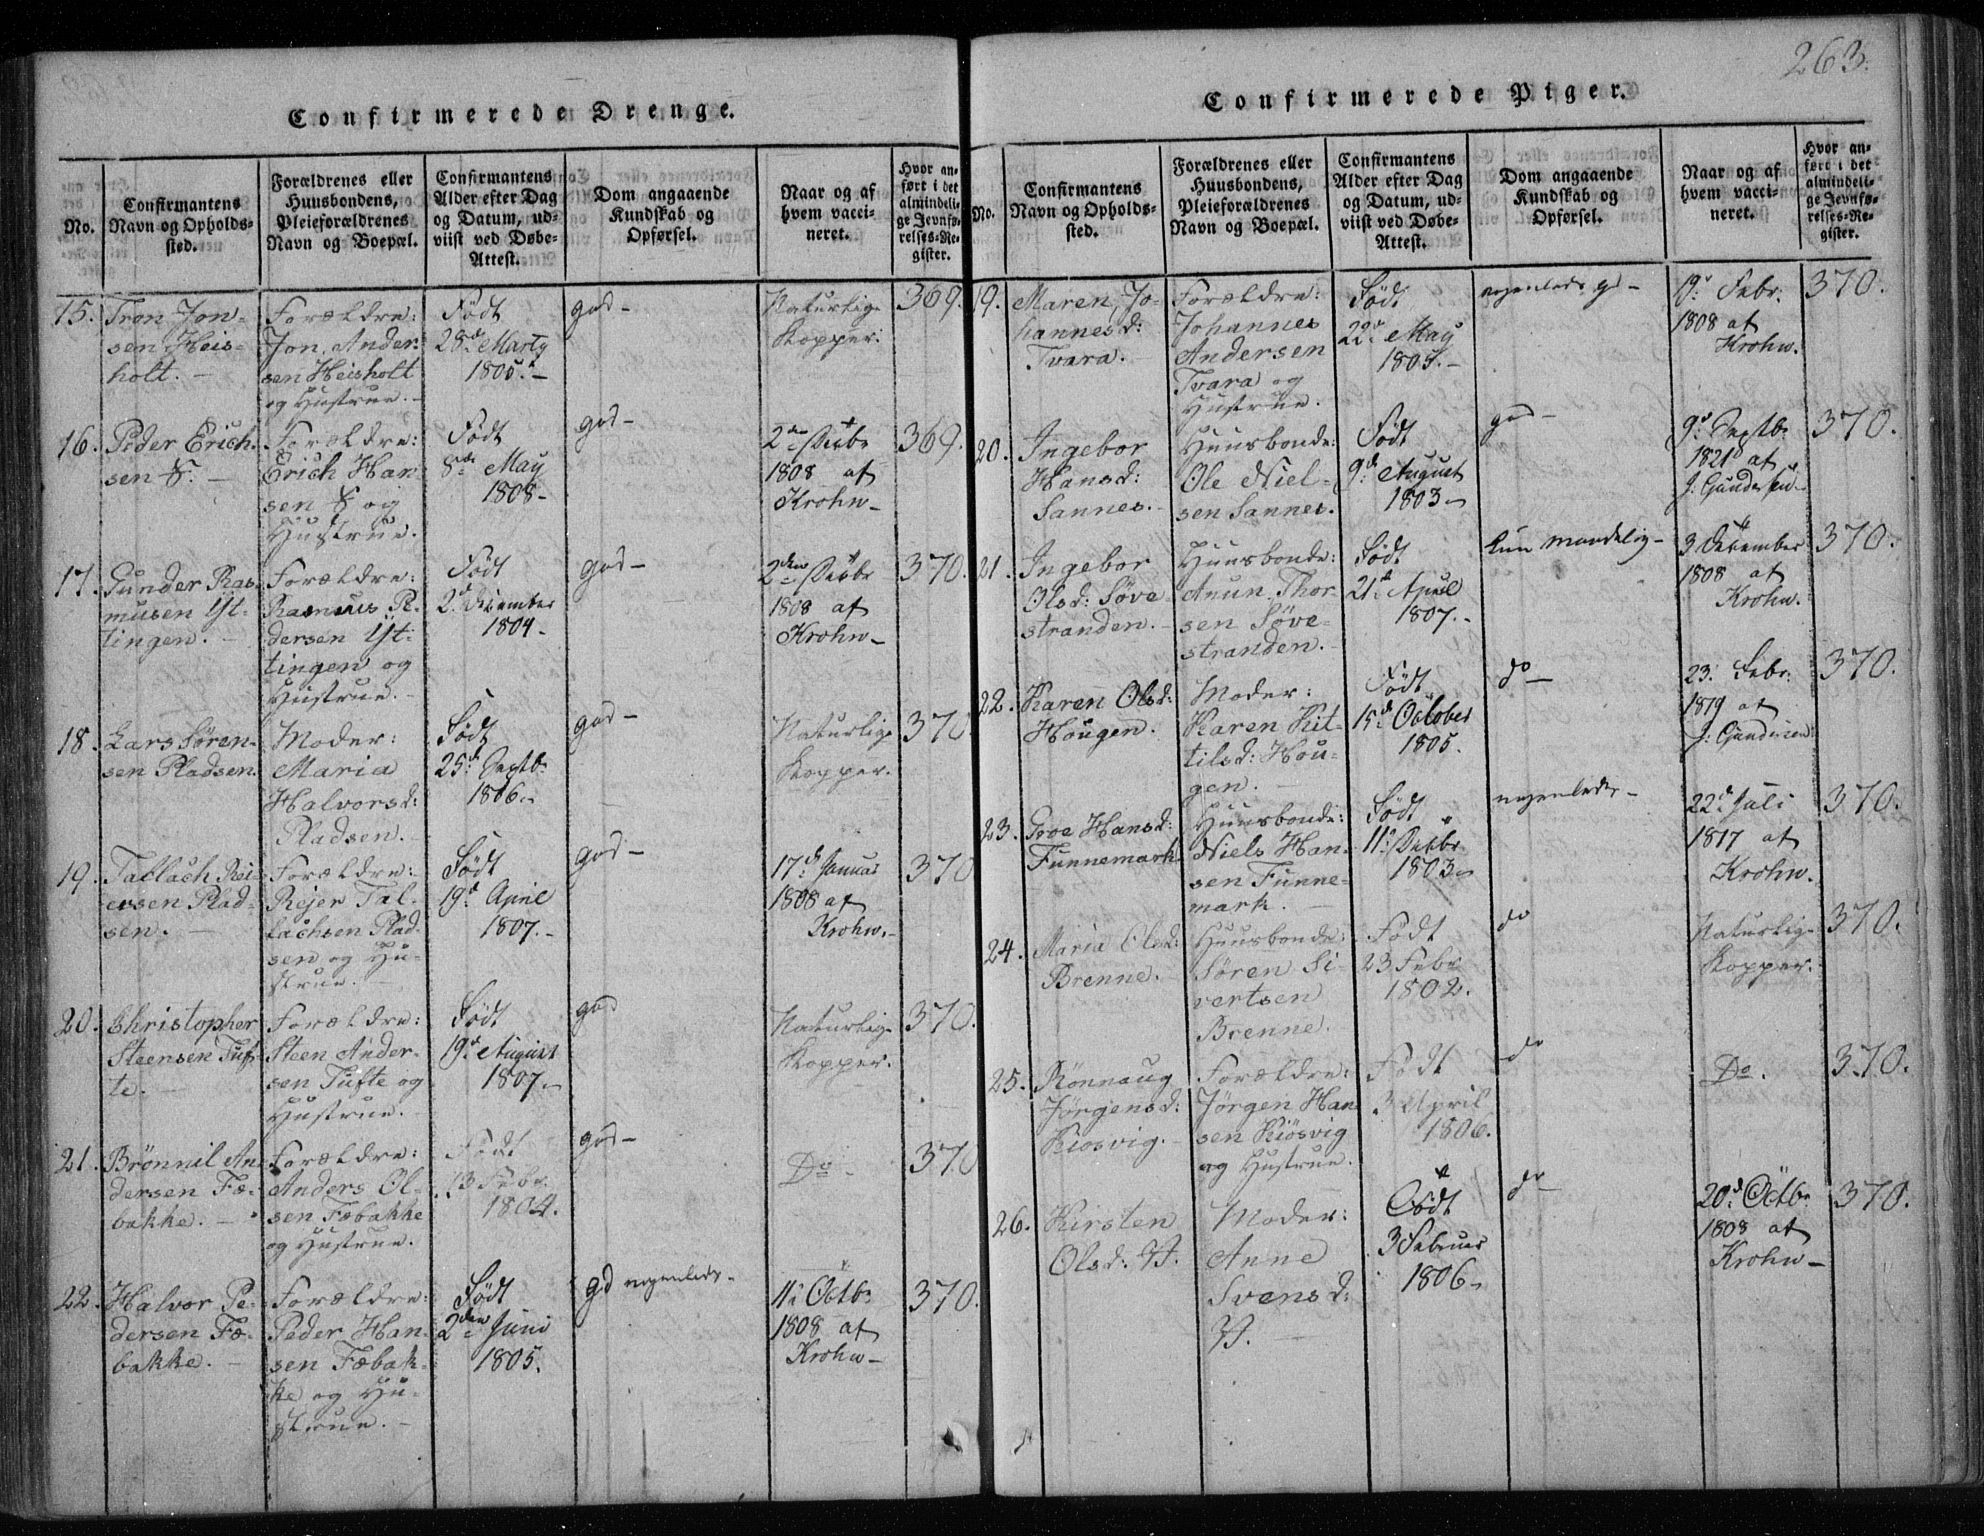 263.
Confirmerede Drenge.
No.
Confirmantens
Navn og Opholds-
sted.
Forældrenes eller
Huusbondens,
Pleieforældrenes
Navn og Boepæl.
Confirmantens
Alder efter Dag
og Datum, ud-
viist ved Døbe-
Attest.
Dom angaaende
Kundskab og
Opførsel.
Naar og af
hvem vacci-
neret.
Hvor an-
ført i det
almindeli-
ge Jevnfø-
relses-Re-
gister.
15.
Tron Jon-
sen Heis-
holt. -
Forældre:
Jon Ander-
sen Heisholt
og Hustrue. -
Født
28de Marty
1805. -
god -
Naturlige
Kopper.
369.
16.
Peder Erich-
sen
Forældre:
Erich Han-
sen
og
Hustrue.
Født
8de May
1808 -
god -
2den
1808 af
Krohn -
369.
17.
Gunder Ras-
musen Yt-
tingen. -
Forældre:
Rasmus Pe-
dersen Yt-
tingen og
Hustrue. -
Født
2d December
1804 -
god -
2den
1808 af
Krohn -
370.
18.
Lars Søren-
sen Pladsen.
Moder:
Maria
Halvorsd:
Pladsen. -
Født
25d Septbr
1806. -
god -
Naturlige
Kopper.
370.
19.
Tallach Rei-
ersen Plad-
sen. -
Forældre:
Rejer Tal-
lachsen Plad-
sen og Hu-
strue. -
Født
19d April
1807. -
god -
17d Januar
1808 af
Krohn. -
370
20.
Christopher
Steensen Tuf-
te. -
Forældre:
Steen Ander-
sen Tufte og
Hustrue. -
Født
19d August
1807. -
god
Naturlige
Kopper.
370.
21.
Brönnil An-
dersen Fæ-
bakke. -
Forældre:
Anders Ol-
sen Fæbakke
og Hustrue.
Født
13 Febr.
1804.
god -
Do -
370
22.
Halvor Pe-
dersen Fæ-
bakke. -
Forældre:
Peder Han-
sen Fæbak-
ke og Hu-
strue. -
Født
2den Juni
1805.
gd nogenleds -
11d Octbr
1808 af
Krohn -
370.
Confirmerede Piger.
No.
Confirmantens
Navn og Opholds-
sted.
Forældrenes eller
Huusbondens,
Pleieforældrenes
Navn og Boepæl.
Confirmantens
Alder efter Dag
og Datum, ud-
viist ved Døbe-
Attest.
Dom angaaende
Kundskab og
Opførsel.
Naar og af
hvem vacci-
neret.
Hvor an-
ført i det
almindeli-
ge Jevnfø-
relses-Re-
gister.
19.
Maren Jo-
hannesd:
Tvara. -
Forældre:
Johannes
Andersen
Tvara og
Hustrue.
Født
22de May
1805. -
nogenleds gd -
19d Febr.
1808 af
Krohn.
370.
20.
Ingebor
Hansd:
Sannes. -
Huusbonde:
Ole Niel-
sen Sannes.
Født
9de August
1803 -
god -
9d Septbr
1821 af
J: Gundersen -
370.
21.
Ingebor
Olsd: Söve
stranden. -
Huusbonde:
Anun Thor-
sen Söve-
stranden. -
Født
21d April
1807. -
kun maadelig -
3 December
1808 af
Krohn.
370.
22.
Karen Olsd:
Hougen. -
Moder:
Karen Kit-
tilsd: Hou-
gen. -
Født
15d October
1805.
do -
23. Febr.
1819 af
J: Gundersen
370.
23.
Groe Hansd:
Funnemark
Huusbonde:
Niels Han-
sen Funne-
mark. -
Født
11d
1803 -
nogenleds -
22d Juli
1817 af
Krohn.
370.
24.
Maria Olsd:
Brenne. -
Huusbonde:
Søren Si-
vertsen
Brenne.
Født
23 Febr
1802.
do
Naturlige
Kopper.
370.
25.
Rönnaug
Jörgensd:
Kiosvig. -
Forældre:
Jörgen Han-
sen Kiösvig
og Hustrue.
Født
3 April
1806.
do
Do.
370.
26.
Kirsten
Olsd:
Moder:
Anne
Svensd:
Født
3 Februar
1806 -
do -
20d Octbr
1808 af
Krohn -
370.